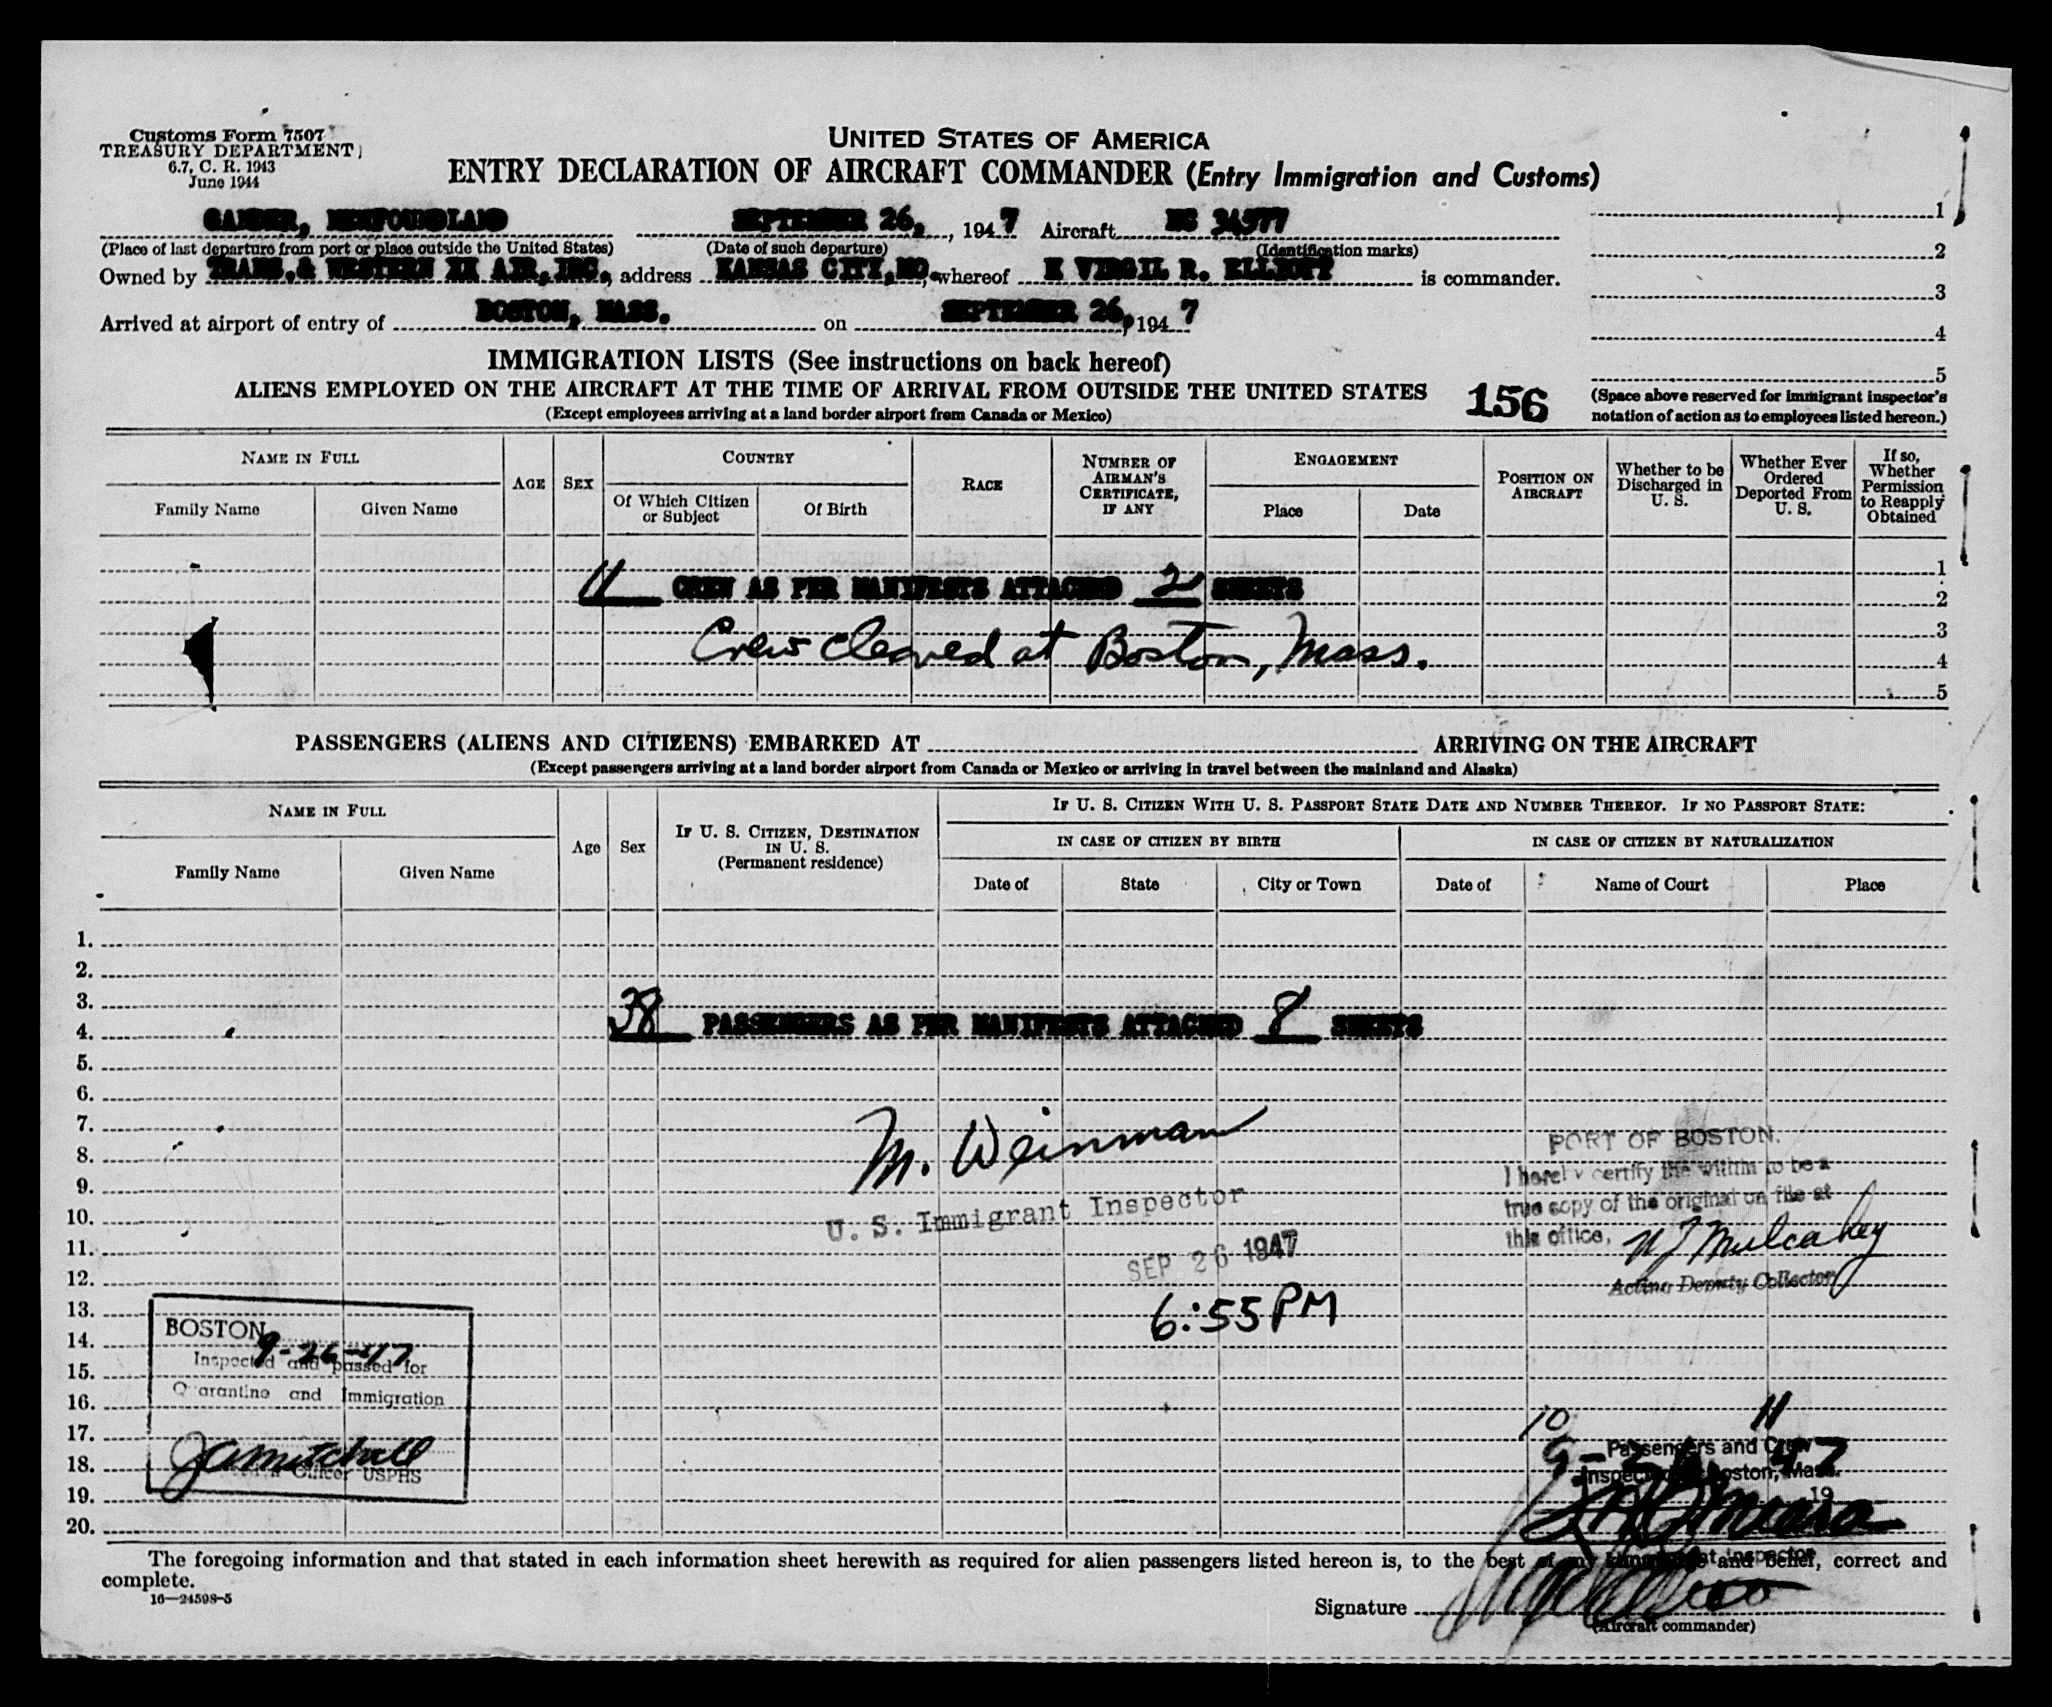 Customs Form 7507
TREASURY DEPARTMENT
6.7, C. R. 1943
June 1944
UNITED STATES OF AMERICA
ENTRY DECLARATION OF AIRCRAFT COMMANDER (Entry Immigration and Customs)
GANDER, NEWFOUNDLAND SEPTEMBER 26, , 1947 Aircraft NC 34577
(Place of last departure from port or place outside the United States) (Date of such departure) (Identification marks)
Owned by TRANS.& WESTERN AIR,INC. , address KANSAS CITY,MO. , whereof VIRGIL R. ELLIOTT is commander.
Arrived at airport of entry of BOSTON, MASS. on SEPTEMBER 26, , 1947
1
2
3
4
5
(Space above reserved for immigrant inspector's
notation of action as to employees listed hereon.)
IMMIGRATION LISTS (See instructions on back hereof)
ALIENS EMPLOYED ON THE AIRCRAFT AT THE TIME OF ARRIVAL FROM OUTSIDE THE UNITED STATES 156
(Except employees arriving at a land border airport from Canada or Mexico)
NAME IN FULL
Family Name Given Name
AGE SEX
COUNTRY
Of Which Citizen or Subject Of Birth
RACE
NUMBER OF AIRMAN'S CERTIFICATE, IF ANY
ENGAGEMENT
Place Date
POSITION ON AIRCRAFT
Whether to be Discharged in U. S.
Whether Ever Ordered Deported From U. S.
If so, Whether Permission to Reapply Obtained
1
11 CREW AS PER MANIFESTS ATTACHED 2 SHEETS
2
3
Crew cleared at Boston, Mass.
4
5
PASSENGERS (ALIENS AND CITIZENS) EMBARKED AT ARRIVING ON THE AIRCRAFT
(Except passengers arriving at a land border airport from Canada or Mexico or arriving in travel between the mainland and Alaska)
NAME IN FULL
Family Name Given Name
Age Sex
IF U. S. CITIZEN, DESTINATION IN U. S.
(Permanent residence)
IF U. S. CITIZEN WITH U. S. PASSPORT STATE DATE AND NUMBER THEREOF. IF NO PASSPORT STATE:
IN CASE OF CITIZEN BY BIRTH IN CASE OF CITIZEN BY NATURALIZATION
Date of State City or Town Date of Name of Court Place
1.
2.
3.
38 PASSENGERS AS PER MANIFESTS ATTACHED 8 SHEETS
4.
5.
6.
7.
8.
9.
10.
11.
12.
13.
14.
15.
16.
17.
18.
19.
20.
M. Weinman
U. S. Immigrant Inspector
SEP 26 1947
6:55 PM
PORT OF BOSTON.
I hereby certify the within to be a
true copy of the original on file at
this office,
Mulcahey
Acting Deputy Collector
BOSTON
9-26-47
Inspected and passed for
Quarantine and Immigration
JA Mitchell
Officer USPHS
10 11
Passengers and Crew
Inspected at Boston, Mass.
19
Immigrant Inspector
The foregoing information and that stated in each information sheet herewith as required for alien passengers listed hereon is, to the best of my knowledge and belief, correct and
complete.
16—24598-5
Signature
(Aircraft commander)